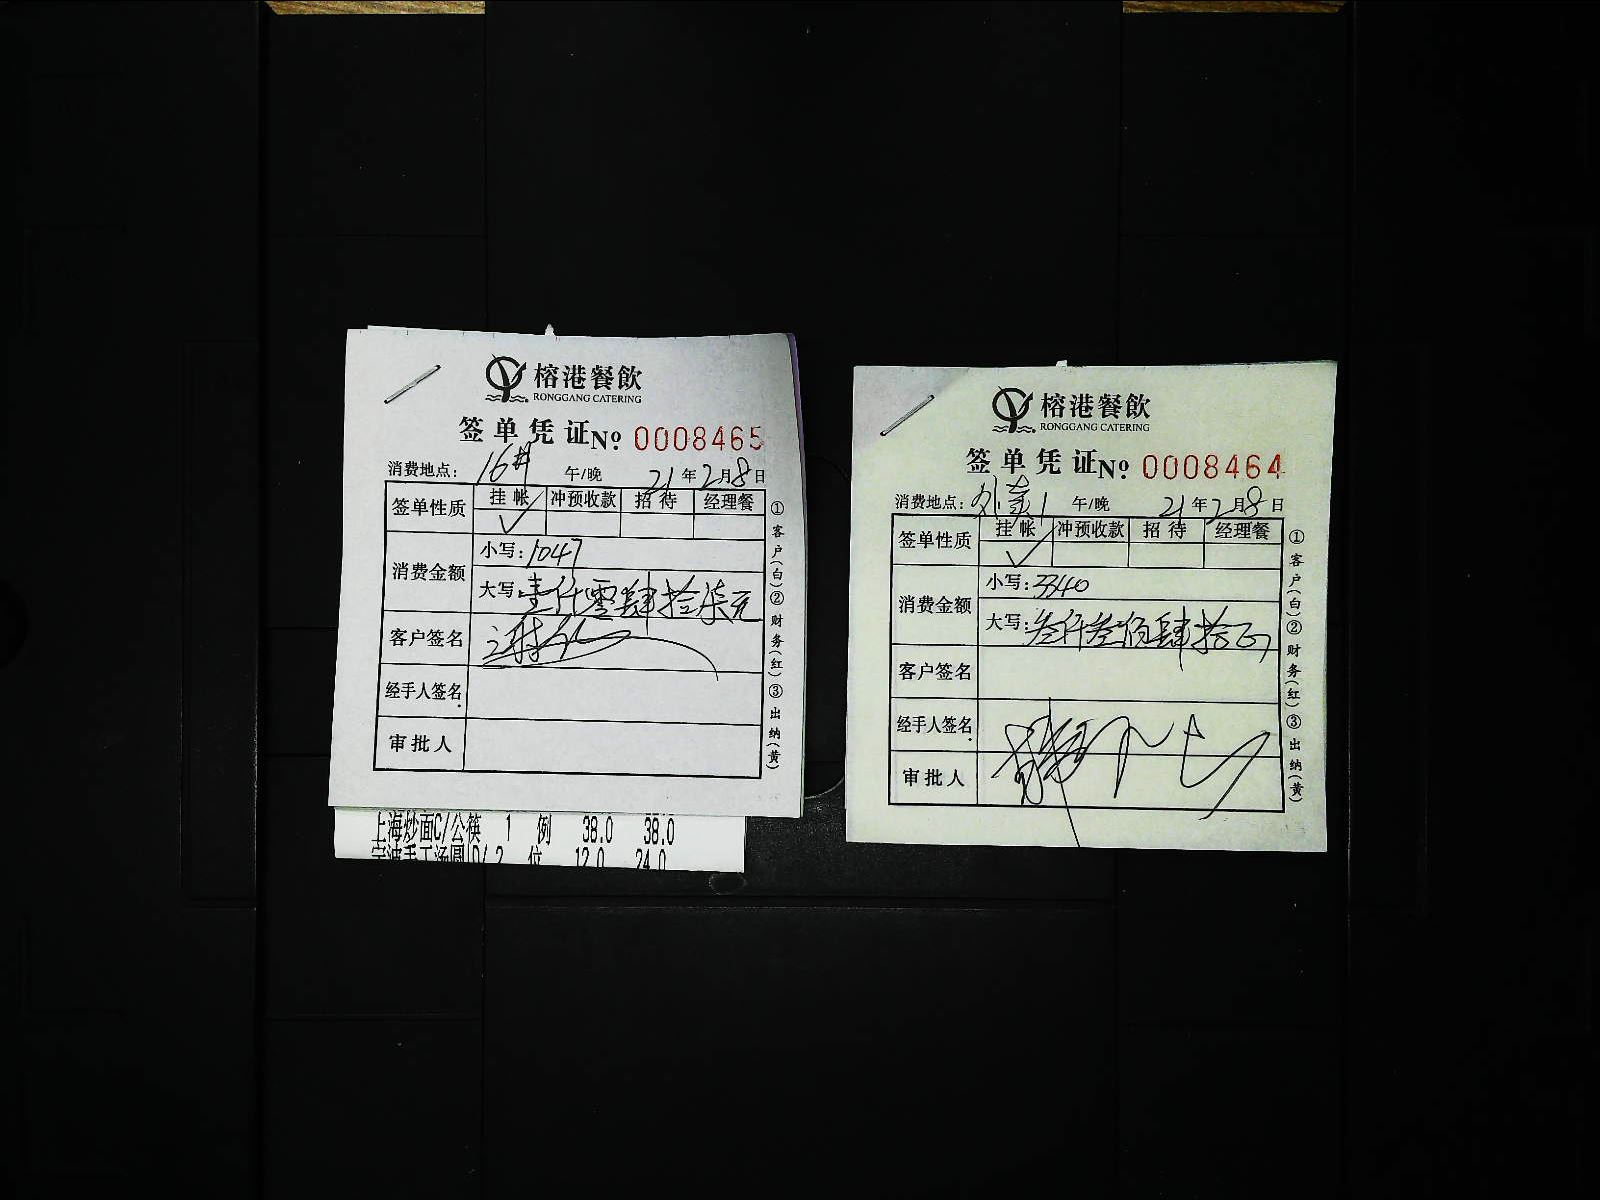 榕港餐飲
RONGGANG CATERING
签单凭证 № 0008465
消费地点: 16# 午/晚 21年2月8日
签单性质 挂帐 冲预收款 招待 经理餐
✓
消费金额 小写: 1047
大写: 壹仟零肆拾柒元
客户签名
经手人签名
审批人
①客户(白)②财务(红)③出纳(黄)
上海炒面C/公筷 1 例 38.0 38.0
宁波手工汤圆D/ 2 位 12.0 24.0
榕港餐飲
RONGGANG CATERING
签单凭证 № 0008464
消费地点: 外卖1 午/晚 21年2月8日
签单性质 挂帐 冲预收款 招待 经理餐
✓
消费金额 小写: 3340
大写: 叁仟叁佰肆拾
客户签名
经手人签名
审批人
①客户(白)②财务(红)③出纳(黄)